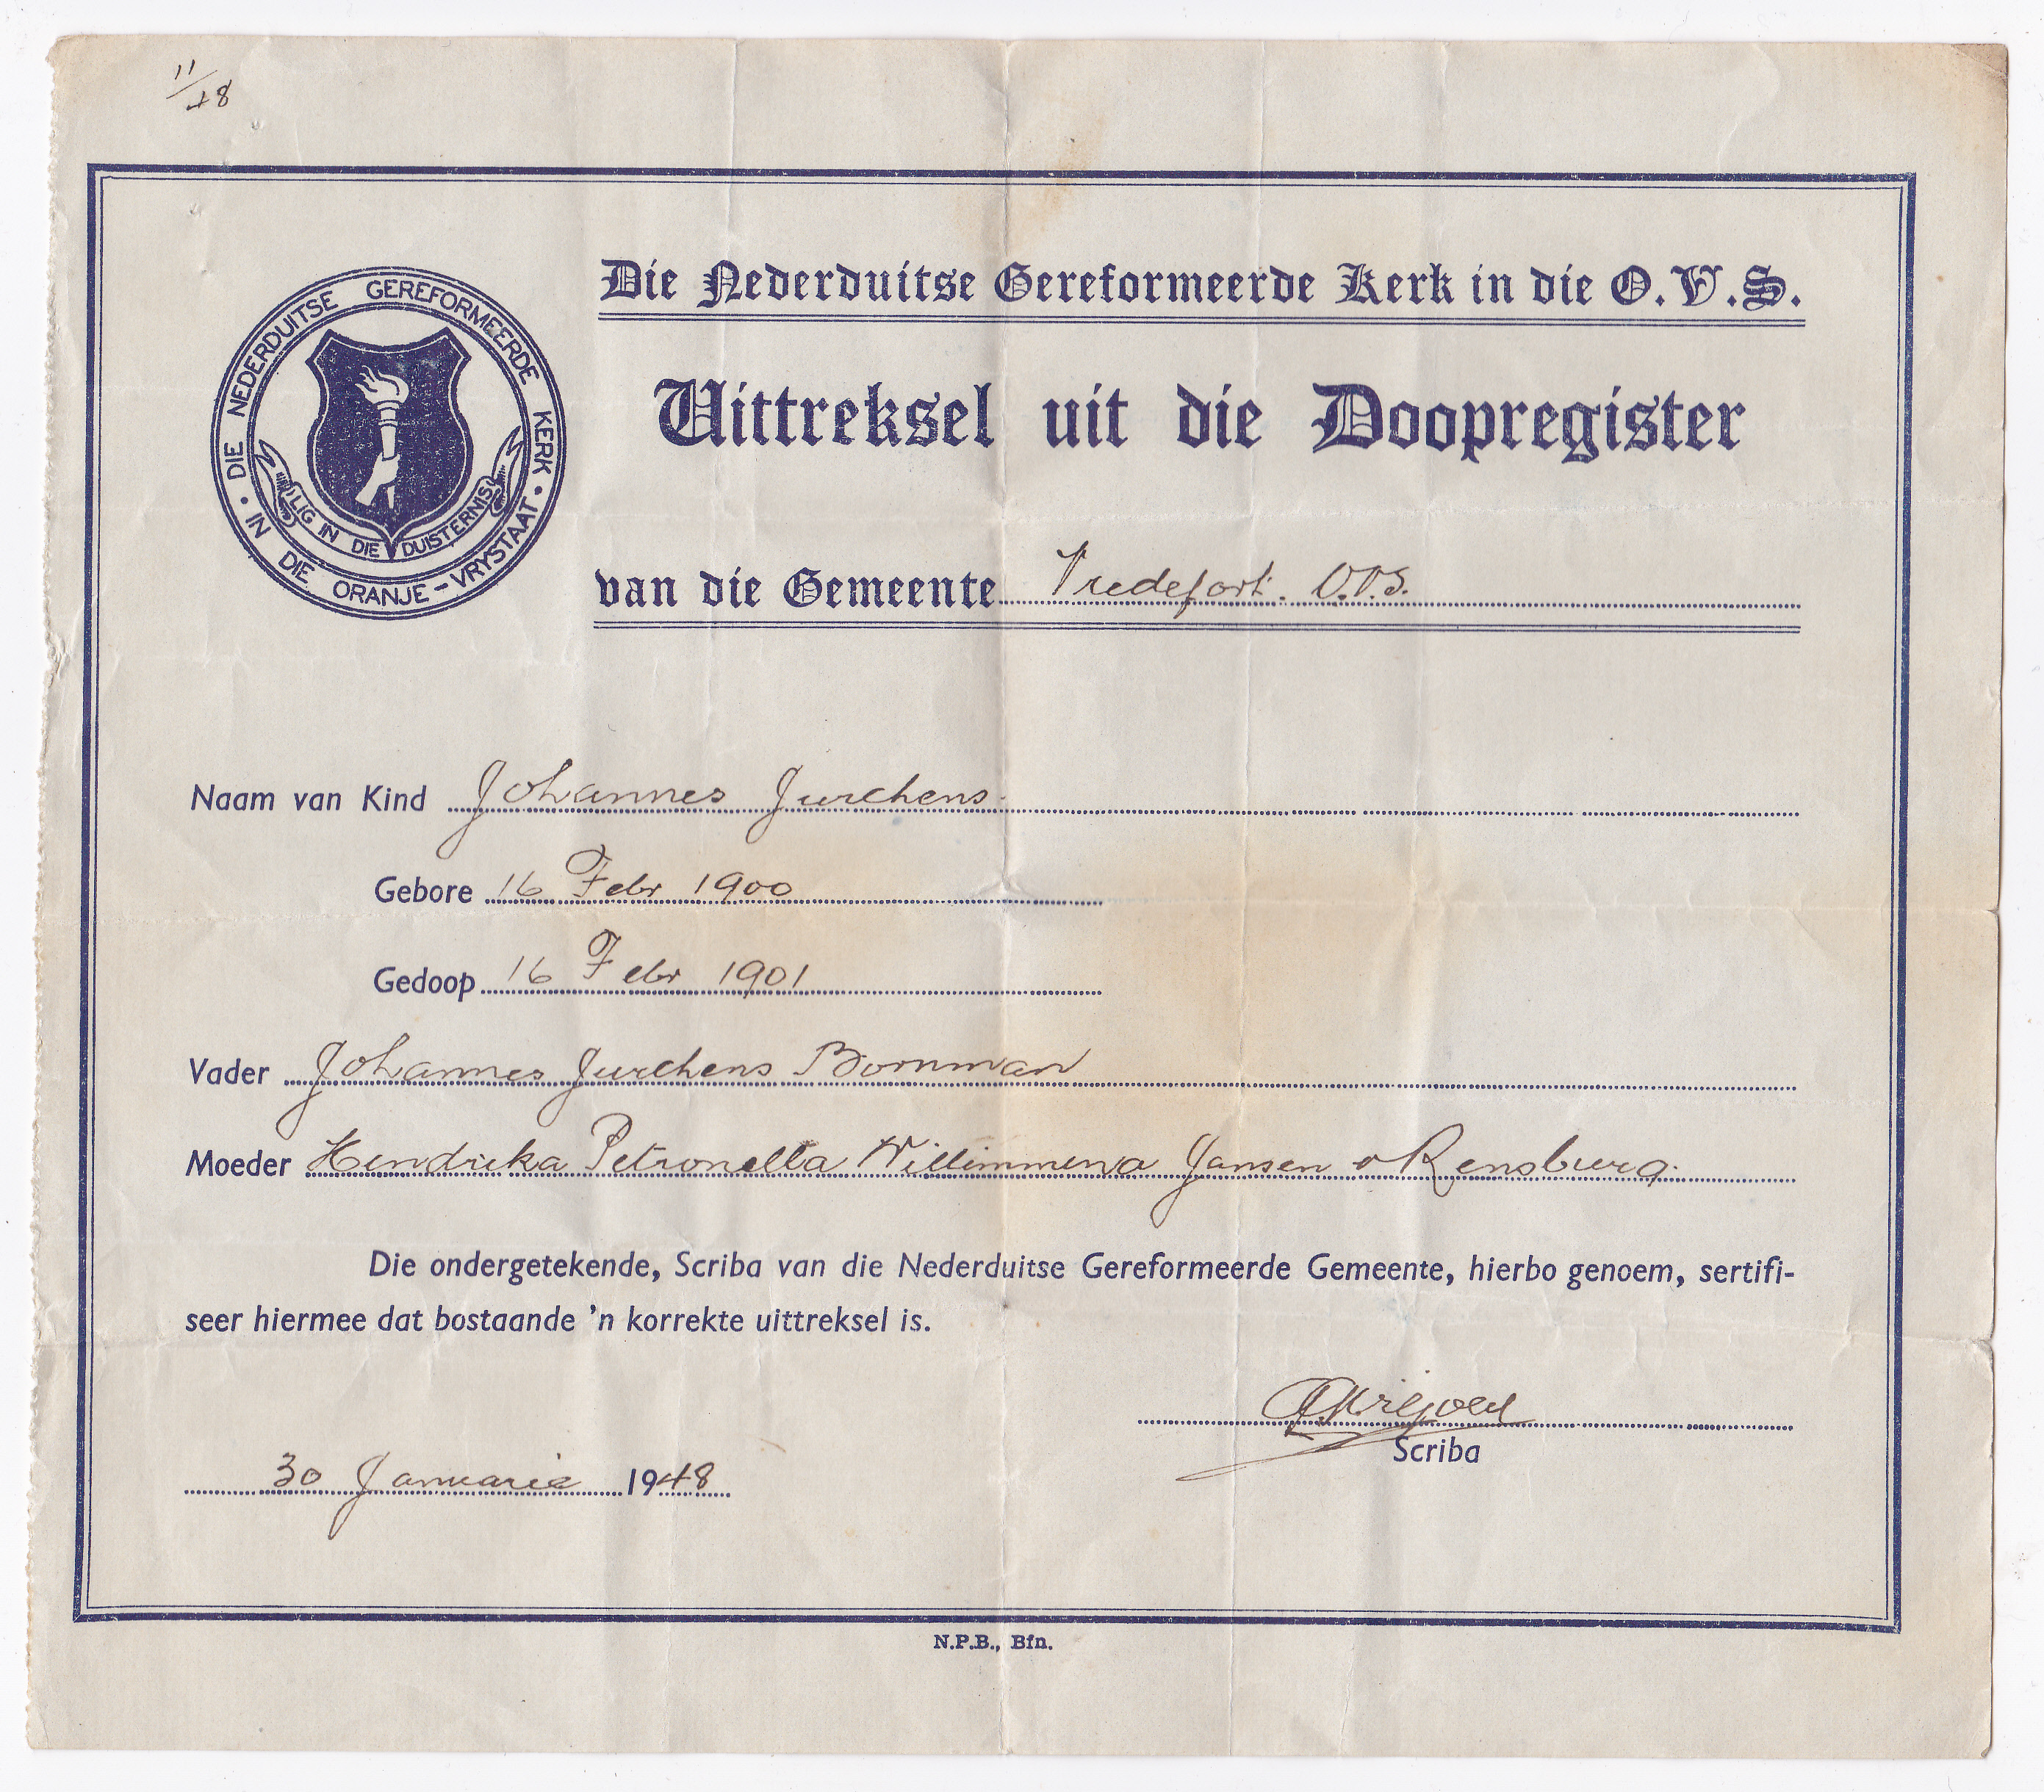 11/48
Die Nederduitse Gereformeerde Kerk in die O.V.S.
DIE NEDERDUITSE GEREFORMEERDE KERK
IN DIE ORANJE-VRYSTAAT
LIG IN DIE DUISTERNIS
Uittreksel uit die Doopregister
van die Gemeente Vredefort. O.V.S.
Naam van Kind Johannes Jurchens
Gebore 16 Febr 1900
Gedoop 16 Febr 1901
Vader Johannes Jurchens Bornman
Moeder Hendrieka Petronella Willimmena Jansen v Rensburg.
Die ondergetekende, Scriba van die Nederduitse Gereformeerde Gemeente, hierbo genoem, sertifi-
seer hiermee dat bostaande 'n korrekte uittreksel is.
Scriba
30 Januarie 1948
N.P.B., Bfn.